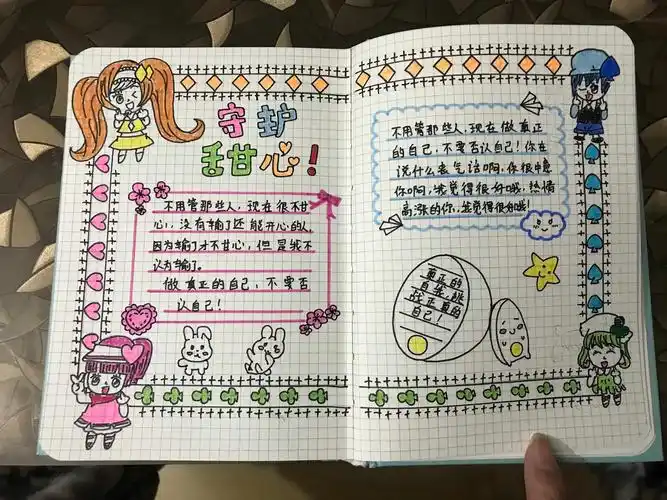 守护
甜心！
不用管那些人，现在很不甘
心，没有输了还能开心的人，
因为输了才不甘心，但是我不
认为输了。
做真正的自己，不要否
认自己！
不用管那些人，现在做真正
的自己，不要否认自己！你在
说什么丧气话啊，你很中意
你啊，我觉得很好哦，热情
高涨的你，我觉得很好哦！
真正的
自我，
找正直的
自己！